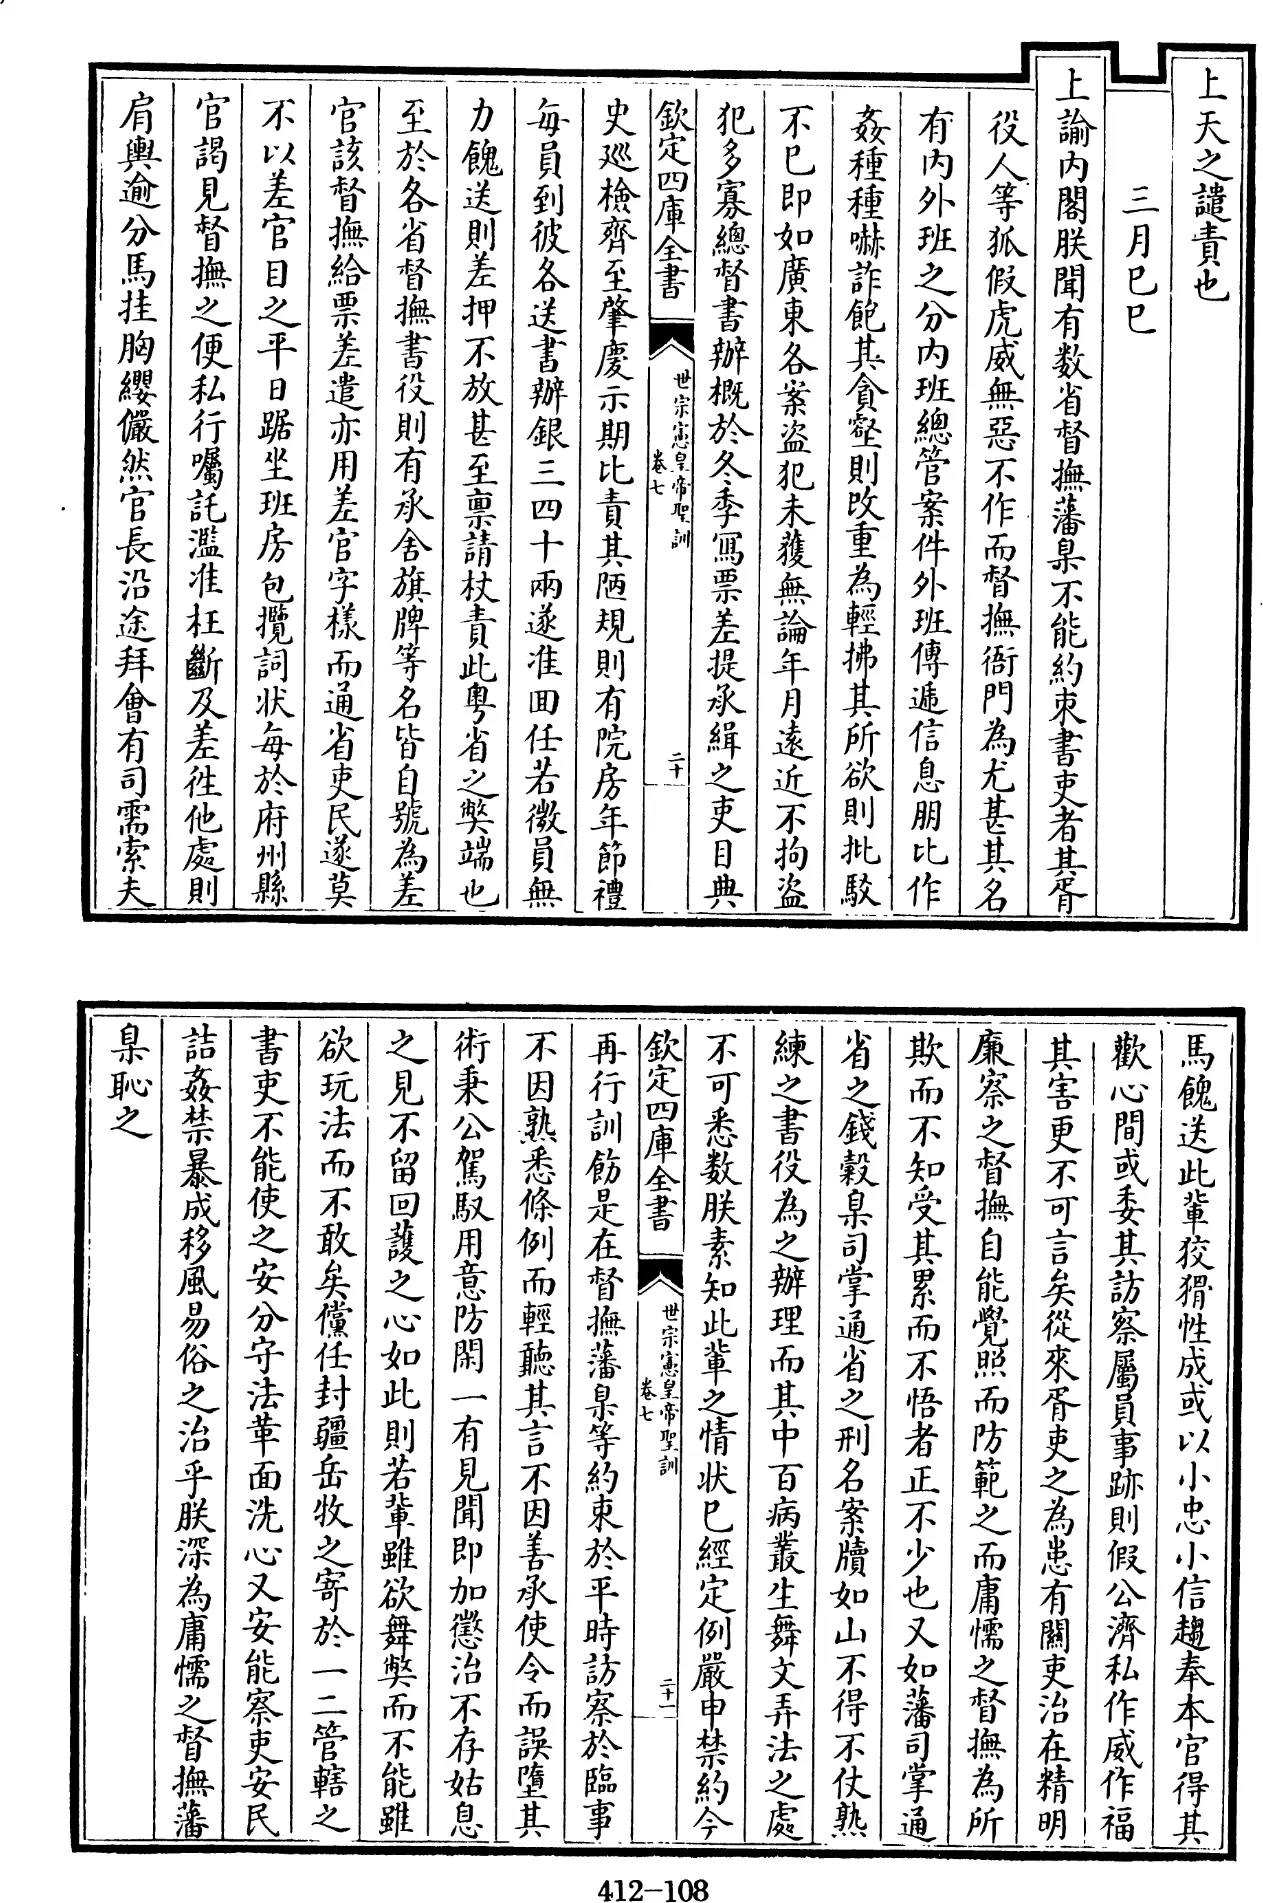 上天之譴責也
三月巳巳
上諭内閣朕聞有数省督撫藩臬不能約束書吏者其胥
役人等狐假虎威無惡不作而督撫衙門為尤甚其名
有内外班之分内班總管案件外班傳遞信息朋比作
姦種種嚇詐飽其貪壑則改重為輕拂其所欲則批駁
不巳即如廣東各案盜犯未獲無論年月遠近不拘盜
犯多寡總督書辦概於冬季寫票差提承緝之吏目典
欽定四庫全書
世宗憲皇帝聖訓
卷七
二十
史巡檢齊至肇慶示期比責其陋規則有院房年節禮
每員到彼各送書辦銀三四十兩遂准回任若微員無
力餽送則差押不放甚至稟請杖責此粤省之獘端也
至於各省督撫書役則有承舍旗牌等名皆自號為差
官該督撫給票差遣亦用差官字樣而通省吏民遂莫
不以差官目之平日踞坐班房包攬詞狀每於府州縣
官謁見督撫之便私行囑託濫准枉斷及差徃他處則
肩輿逾分馬挂胸纓儼然官長沿途拜會有司需索夫
馬餽送此輩狡猾性成或以小忠小信趨奉本官得其
歡心間或委其訪察屬員事跡則假公濟私作威作福
其害更不可言矣從來胥吏之為患有關吏治在精明
廉察之督撫自能覺照而防範之而庸懦之督撫為所
欺而不知受其累而不悟者正不少也又如藩司掌通
省之錢穀臬司掌通省之刑名案牘如山不得不仗熟
練之書役為之辦理而其中百病叢生舞文弄法之處
不可悉数朕素知此輩之情狀巳經定例嚴申禁約今
欽定四庫全書
世宗憲皇帝聖訓
卷七
二十一
再行訓飭是在督撫藩臬等約束於平時訪察於臨事
不因熟悉條例而輕聽其言不因善承使令而誤墮其
術秉公駕馭用意防閑一有見聞即加懲治不存姑息
之見不留回護之心如此則若輩雖欲舞獘而不能雖
欲玩法而不敢矣儻任封疆岳牧之寄於一二管轄之
書吏不能使之安分守法革面洗心又安能察吏安民
詰姦禁暴成移風易俗之治乎朕深為庸懦之督撫藩
臬恥之
412-108